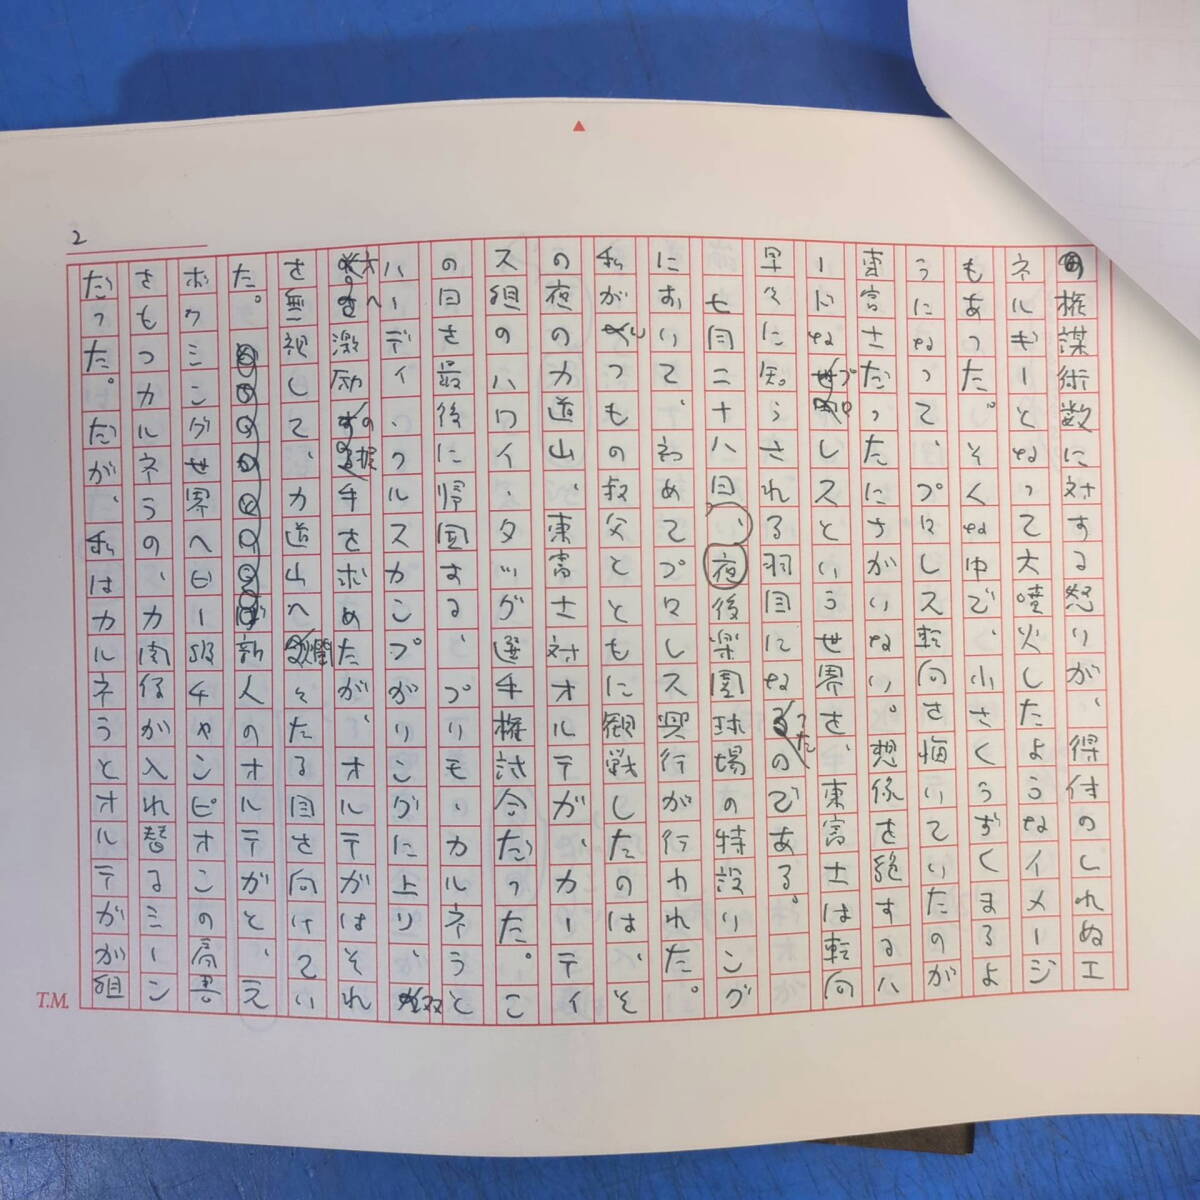 2
の権謀術数に対する怒りが、得体のしれぬエ
ネルギーとなって大噴火したようなイメージ
もあった。そんな中で、小さくうずくまるよ
うになって、プロレス転向を悔いていたのが
東富士だったにちがいない。想像を絶するハ
ードなプロレスという世界を、東富士は転向
早々に知らされる羽目になったのである。
七月二十八日、夜後楽園球場の特設リング
において、初めてプロレス興行が行われた。
私がくりつもの叔父とともに観戦したのは、そ
の夜の力道山、東富士対オルテガ、カーティ
ス組のハワイ・タッグ選手権試合だった。こ
の日を最後に帰国する、プリモ・カルネラと
ハーディ・クルスカンプがリングに上り、双
方へ激励の握手を求めたが、オルテガはそれ
を無視して、力道山へ闘志たる目を向けてい
た。新人のオルテガと、元
ボクシング世界ヘビー級チャンピオンの肩書
をもつカルネラの、力関係が入れ替るシーン
だった。だが、私はカルネラとオルテガが組
T.M.